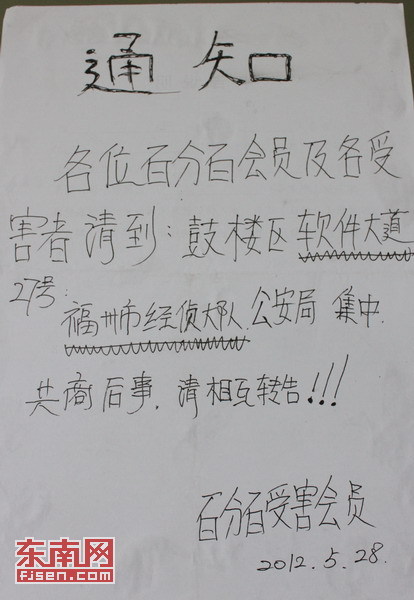 通知
各位百分百会员及各受
害者请到：鼓楼区软件大道
27号：
福州市经侦大队公安局 集中
共商后事，请相互转告!!!
百分百受害会员
2012.5.28.
东南网
fjsen.com